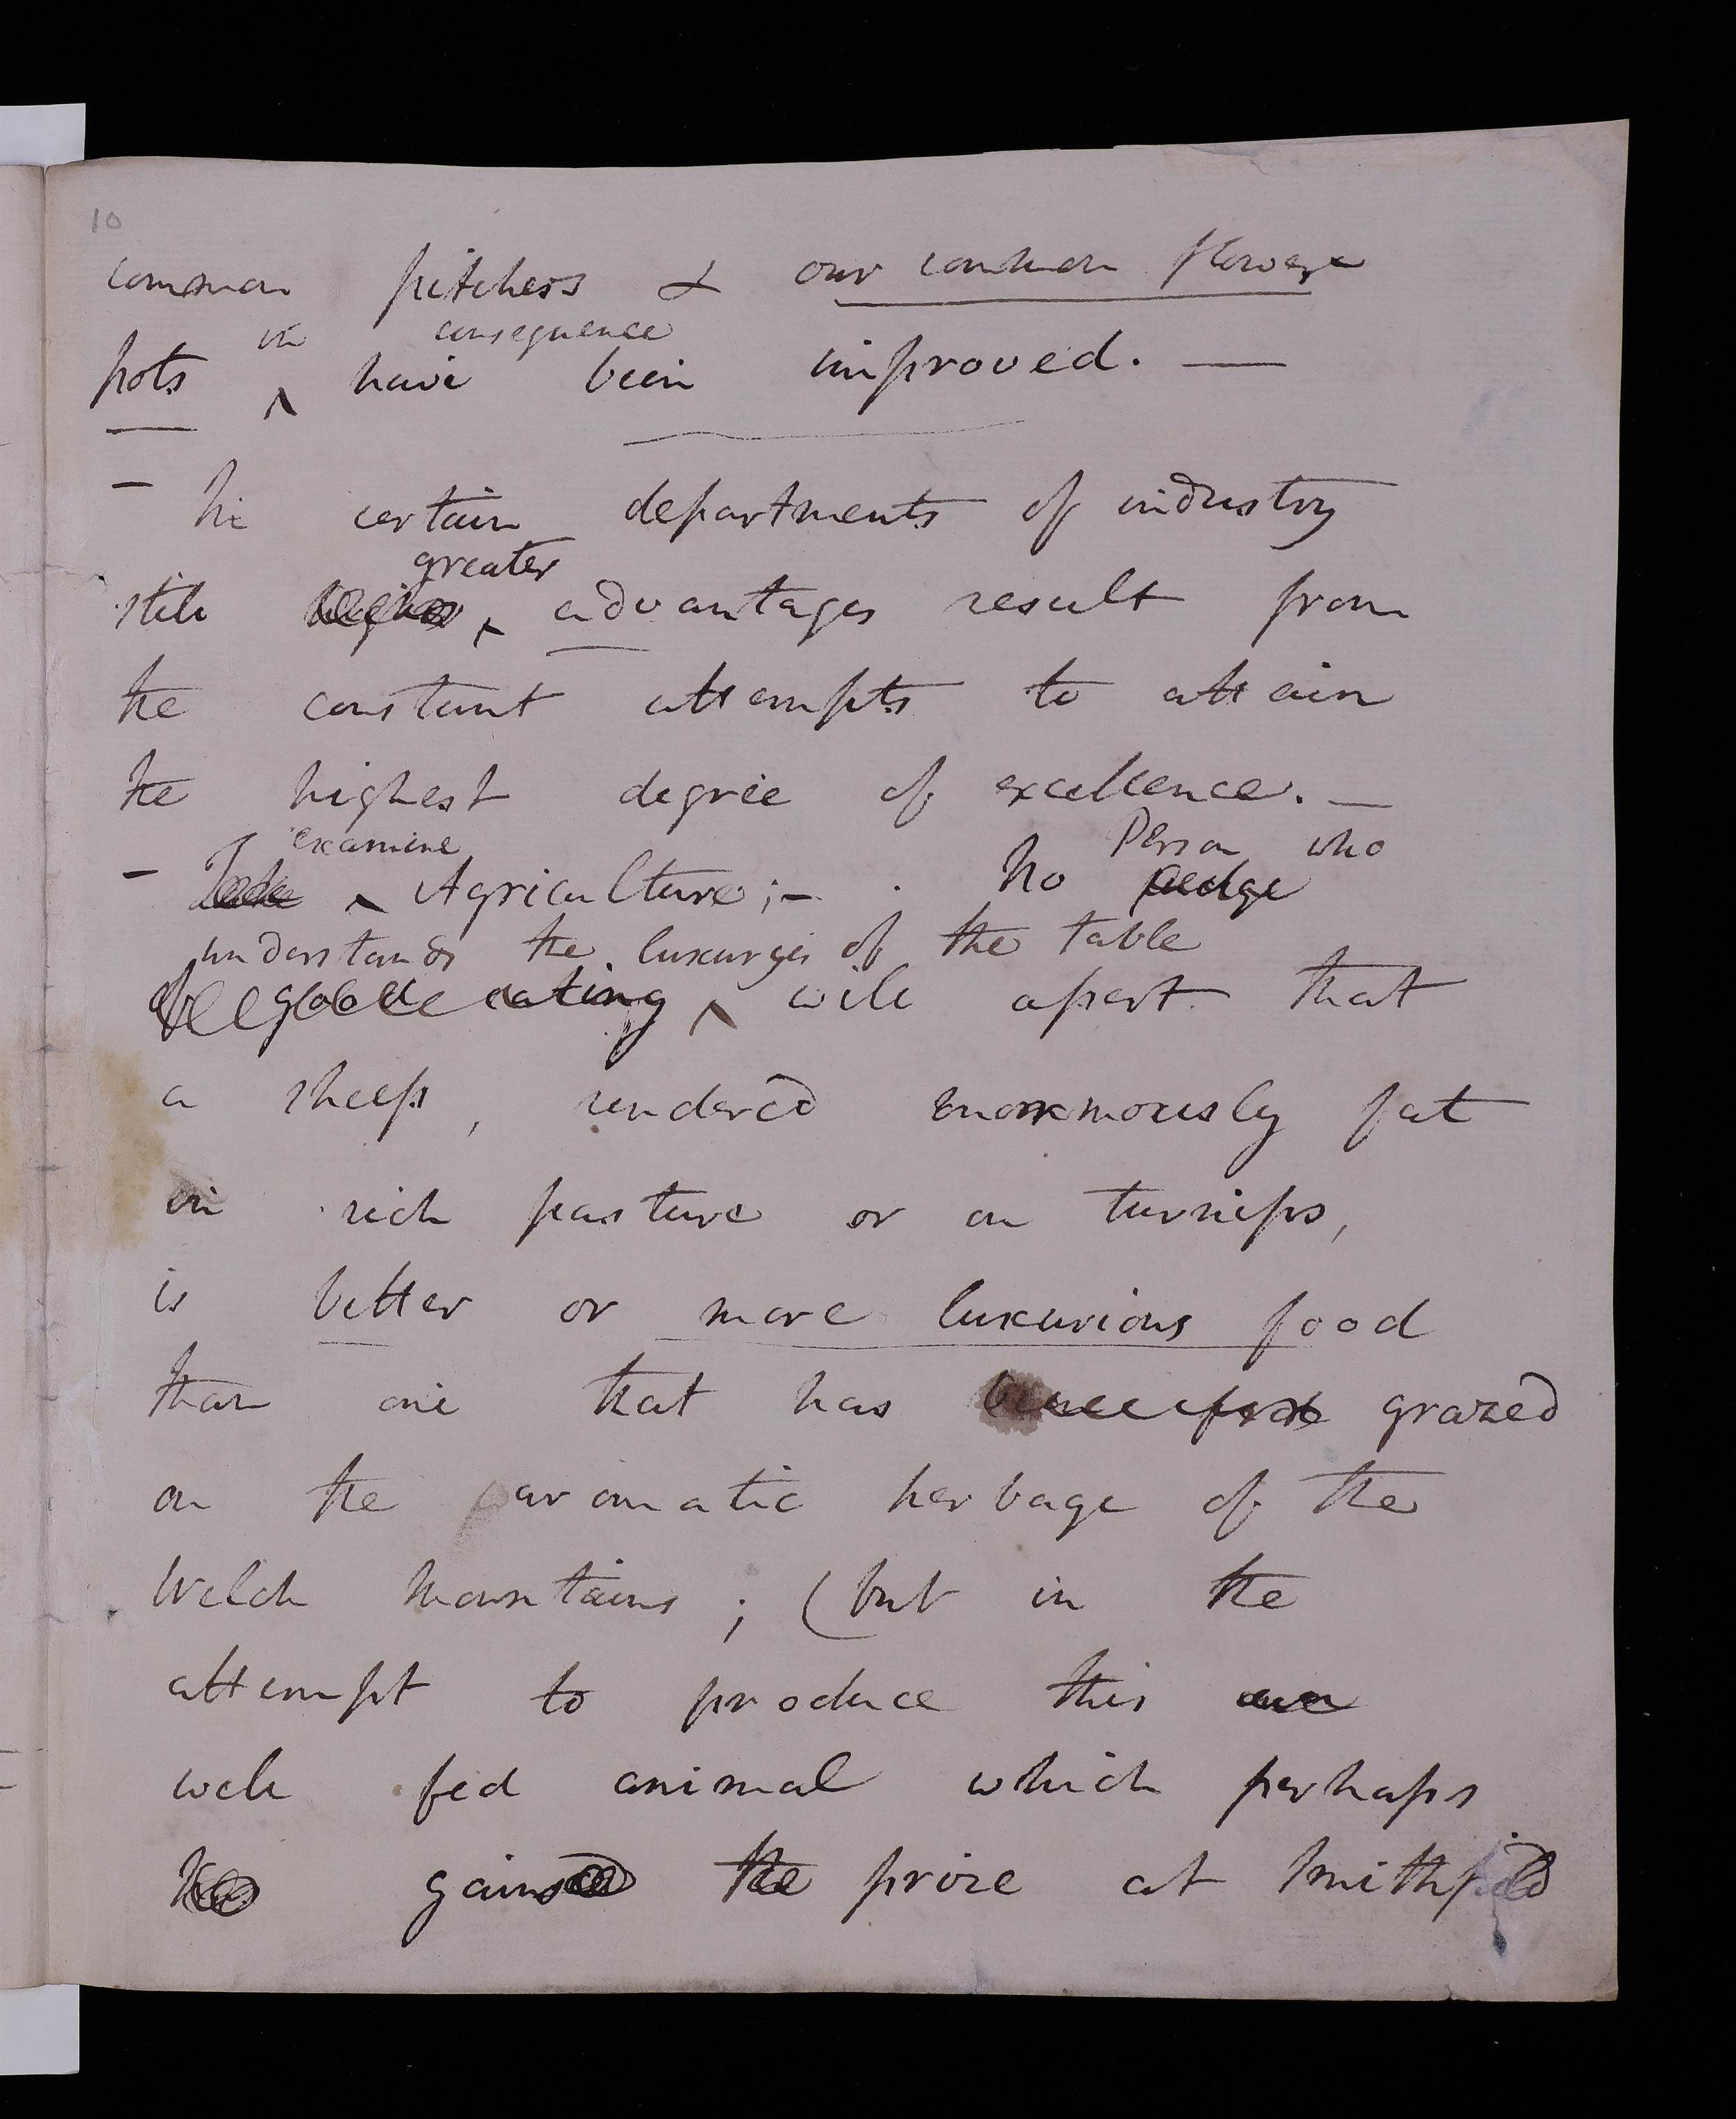 10
common pitchers & our common flower
in consequence
pots ^ have been improved. —
— In certain departments of industry
greater
still ^ advantages result from
the constant attempts to attain
the highest degree of excellence. —
examine Person who
— Take ^ Agriculture; — . No judge
understands the luxuries of the table
of good eating ^ will assert that
a sheep, rendered enormously fat
in rich pasture or on turnips,
is better or more luxurious food
than one that has grazed
on the aromatic herbage of the
Welch Mountains; (but in the
attempt to produce this
well fed animal which perhaps
gained the prize at Smithfield